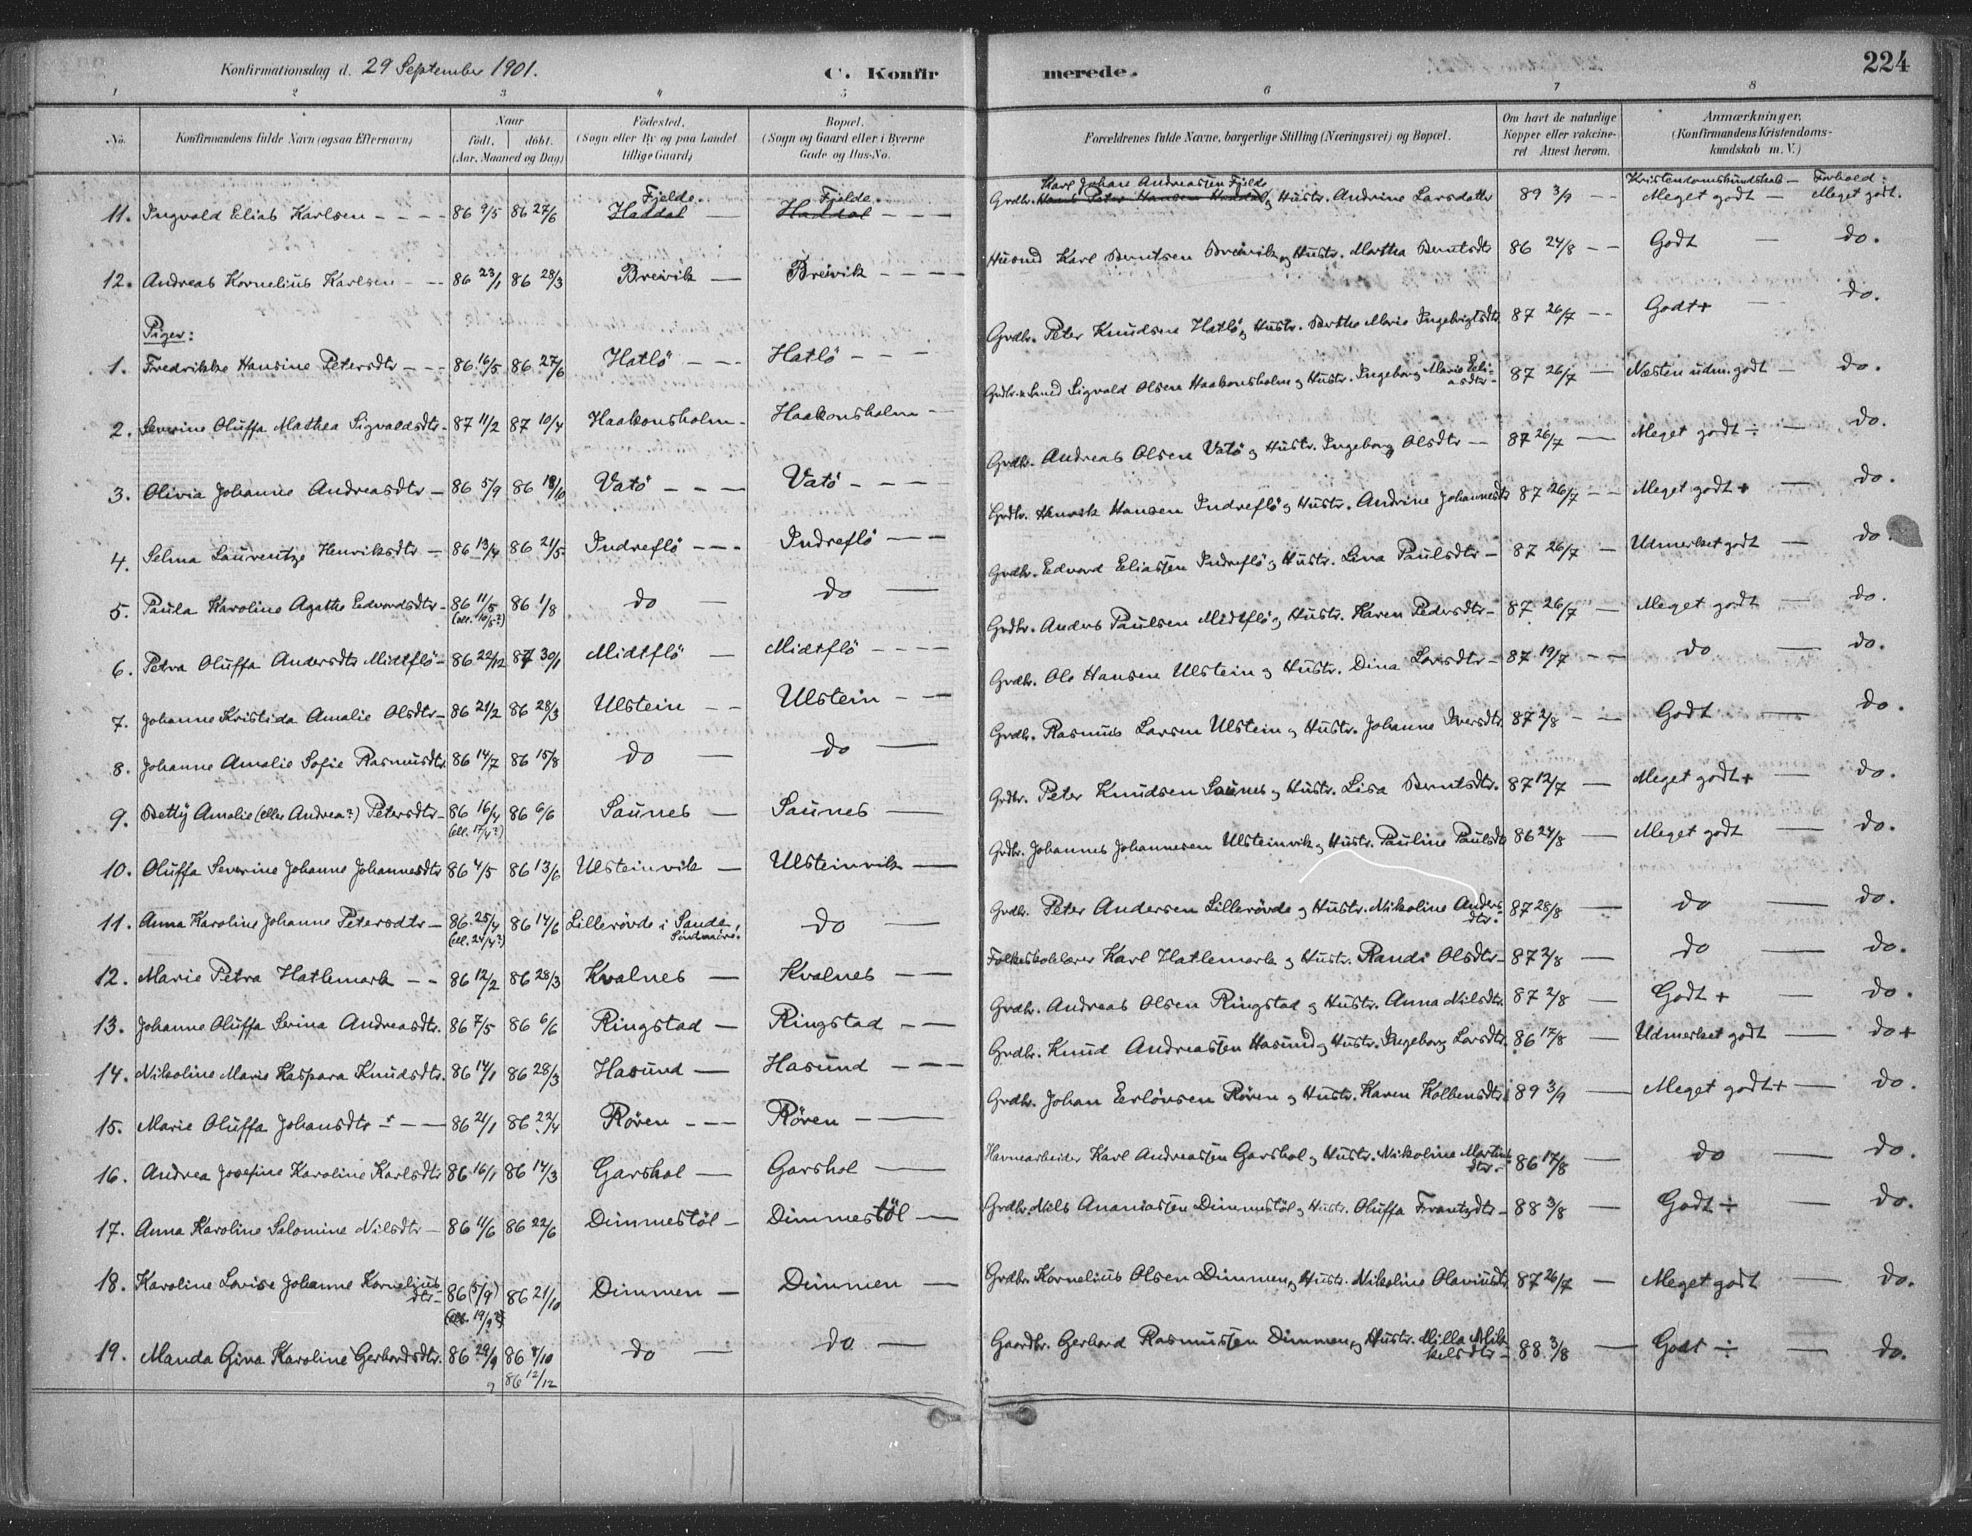 Konfirmationsdag d. 29 September 1901.
C. Konfirmerede.
224
1 2 3 4 5 6 7 8
No. Konfirmandens fulde Navn (ogsaa Efternavn) Naar født, døbt. (Aar, Maaned og Dag) Fødested. (Sogn eller By og paa Landet tillige Gaard) Bopæl. (Sogn og Gaard eller i Byerne Gade og Hus-No. Forældrenes fulde Navne, borgerlige Stilling (Næringsvei) og Bopæl. Om havt de naturlige Kopper eller vakcineret Attest herom. Anmærkninger, (Konfirmandens Kristendomskundskab m. V.)
Kristendomskundskab — Forhold:
11. Ingvald Elias Karlsen 86 9/5 86 27/6 Fjelde. Haddal Fjelde. Haddal Grdbr. Karl Johan Andreassen Fjelde Hans Peter Hansen Haddal og Hustr. Andrine Larsdatter 89 3/9 Meget godt — Meget godt.
12. Andreas Kornelius Karlsen 86 23/1 86 28/3 Breivik — Breivik Husmd Karl Berntsen Breivik og Hustr. Martha Berntsdtr 86 24/8 Godt — do.
Piger:
1. Fredrikke Hansine Petersdtr 86 16/5 86 27/6 Hatlö Hatlö Grdbr. Peter Knudsen Hatlö og Hustr. Berthe Marie Ingebrigtsdtr. 87 26/7 Godt+ — do.
2. Severine Oluffa Mathea Sigvaldsdtr. 87 11/2 87 10/4 Haakonsholm Haakonsholm Grdbr. & Smed Sigvald Olsen Haakonsholm og Hustr. Ingeborg Marie Eeliasdtr. 87 26/7 Næsten udm. godt — do.
3. Olivia Johanne Andreasdtr 86 5/9 86 18/10 Vatö Vatö Grdbr. Andreas Olsen Vatö og Hustr. Ingeborg Olsdtr 87 26/7 Meget godt ÷ — do.
4. Selma Laurentze Henriksdtr 86 13/4 86 21/5 Indreflö Indreflö Grdbr. Henrik Hansen Indreflö og Hustr. Andrine Johannesdtr 87 26/7 Meget godt + — do.
5. Paula Karoline Agathe Eedvardsdtr 86 11/5 (ell. 10/5?) 86 1/8 do do Grdbr. Eedvard Eeliassen Indreflö og Hustr. Lina Paulsdtr 87 26/7 Udmerket godt — do.
6. Petra Oluffa Andersdtr Midtflö 86 22/12 87 30/1 Midtflö Midtflö Grdbr. Anders Paulsen Midtflö og Hustr. Karen Pedersdtr 87 26/7 Meget godt — do.
7. Johanne Kristida Amalie Olsdtr 86 21/2 86 28/3 Ulstein Ulstein Grdbr. Ole Hansen Ulstein og Hustr. Dina Larsdtr 87 19/7 do — do.
8. Johanne Amalie Sofie Rasmusdtr. 86 14/7 86 15/8 do do Grdbr. Rasmus Larsen Ulstein og Hustr. Johanne Iversdtr. 87 2/8 Godt — do.
9. Betty Amalie (eller Andrea?) Petersdtr 86 16/4 (ell. 17/4?) 86 6/6 Saunes Saunes Grdbr. Peter Knudsen Saunes og Hustr. Lisa Berntsdtr. 87 12/7 Meget godt + — do.
10. Oluffa Severine Johanne Johannesdtr 86 4/5 86 13/6 Ulsteinvik Ulsteinvik Grdbr. Johannes Johannesen Ulsteinvik og Hustr. Pauline Paulsdtr 86 24/8 Meget godt — do.
11. Anna Karoline Johanne Petersdtr 86 25/4 (ell. 24/4?) 86 14/6 Lillerövde i Sande, Söndmöre. do Grdbr. Peter Andersen Lillerövde og Hustr. Nikoline Andersdtr. 87 28/8 do — do.
12. Marie Petra Hatlemark 86 12/2 86 28/3 Kvalnes Kvalnes Folkeskolelærer Karl Hatlemark og Hustr. Randi Olsdtr 87 2/8 do — do.
13. Johanne Oluffa Serina Andreasdtr. 86 7/5 86 6/6 Ringstad Ringstad Grdbr. Andreas Olsen Ringstad og Hustr. Anna Nilsdtr 87 2/8 Godt + — do.
14. Nikoline Marie Kaspara Knudsdtr. 86 14/1 86 28/3 Hasund Hasund Grdbr. Knud Andreassen Hasund og Hustr. Ingeborg Larsdtr. 86 17/8 Udmerket godt — do+
15. Marie Oluffa Johansdtr 86 21/1 86 22/4 Røren Røren Grdbr. Johan Eerlövsen Røren og Hustr. Karen Kolbensdtr 89 3/9 Meget godt+ — do.
16. Andrea Josefine Karoline Karlsdtr 86 16/1 86 14/3 Garshol Garshol Havnearbeider Karl Andreassen Garshol og Hustr. Nikoline Martinsdtr. 86 17/8 do do.
17. Anna Karoline Salomine Nilsdtr 86 4/6 86 22/6 Dimmestöl Dimmestöl Grdbr. Nils Ananiassen Dimmestöl og Hustr. Oluffa Frantzdtr 88 3/8 Godt ÷ — do.
18. Karoline Lovise Johanne Korneliusdtr 86 (5/9) (ell. 19/9?) 86 21/10 Dimmen Dimmen Grdbr. Kornelius Olsen Dimmen og Hustr. Nikoline Olaviusdtr 87 26/7 Meget godt — do.
19. Manda Gina Karoline Gerhardsdtr. 86 29/9 ? 86 8/10 86 12/12 do do Gaardbr. Gerhard Rasmussen Dimmen og Hustr. Milla Mikkelsdtr 88 3/8 Godt ÷ — do.